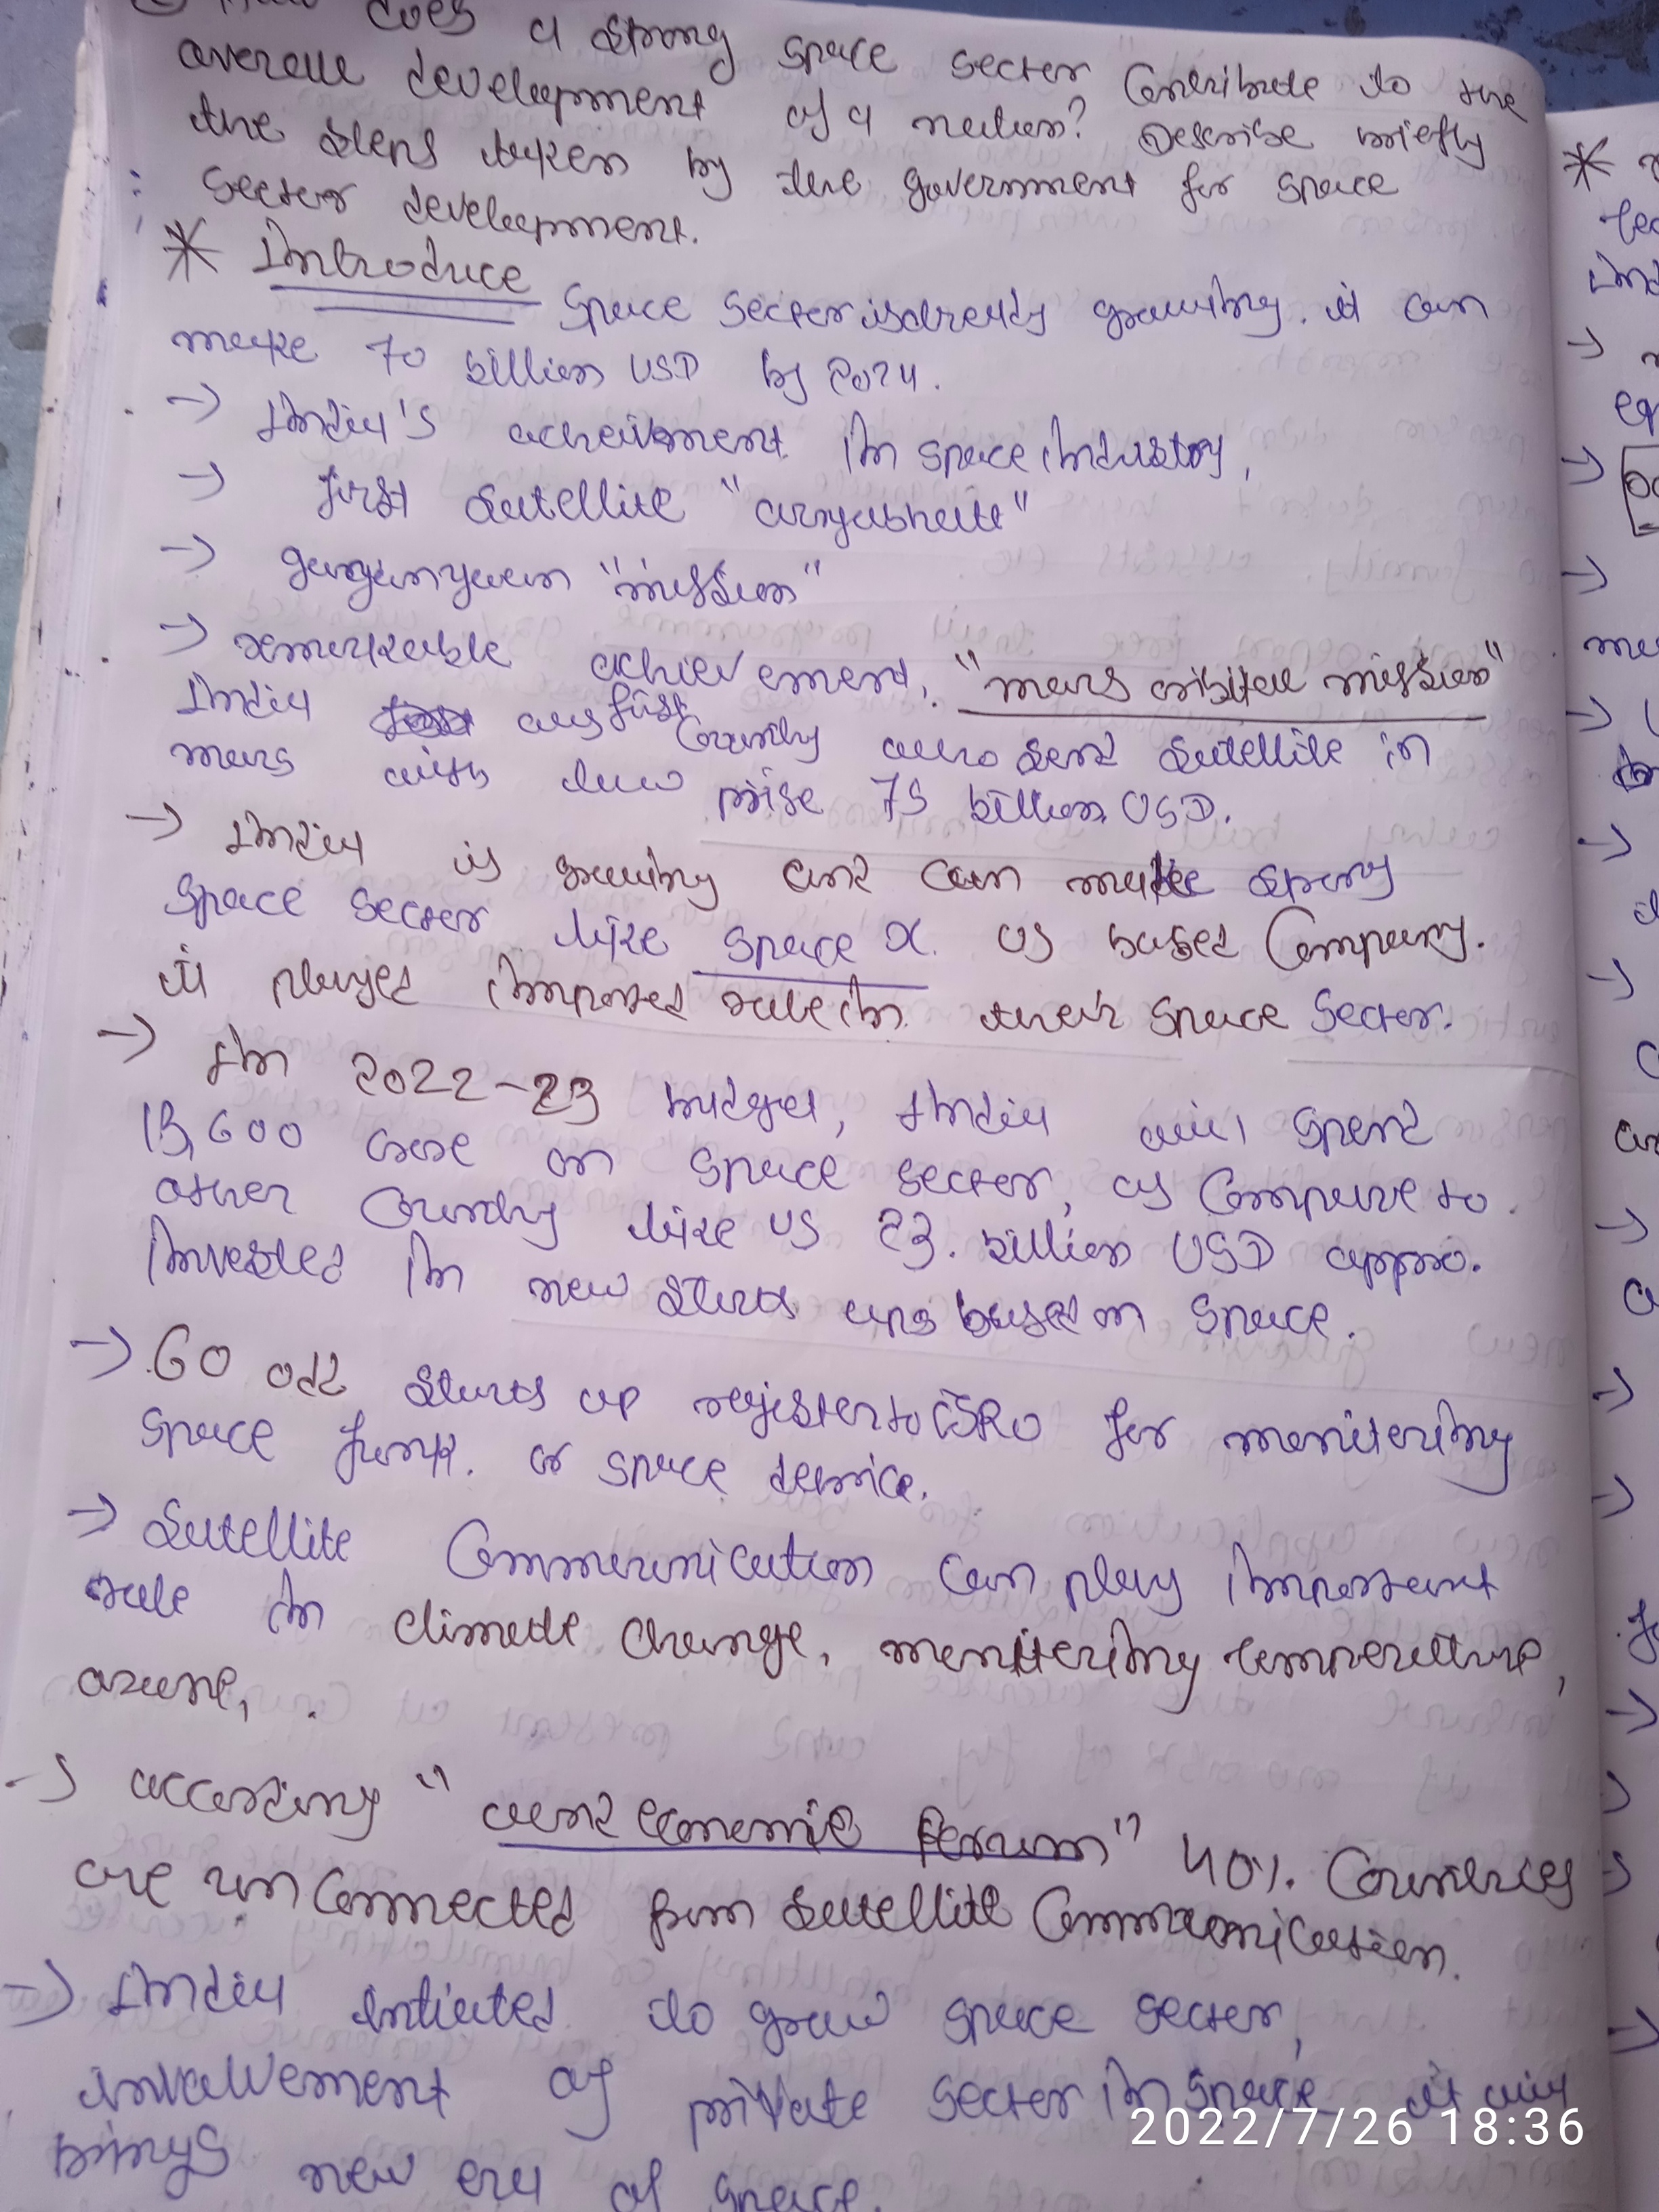 does a strong space sector contribute to the
overall development of a nation? Describe briefly
the steps taken by the government for space
sector development.
* Introduce
space sector is already growing. it can
make 70 billion USD by 2024.
→ India's acheivment in space industry,
→ first satellite "aryabhatt"
→ ganganyaan "mission"
→ remarkable achievement, "mars orbital mission"
India was first country who send satellite in
mars with low prise 75 billion USD.
→ India is growing and can make strong
space sector like space X. US based Company.
it played imported role in their space sector.
→ In 2022-23 budget, India will spend
13,600 crore on space sector, as compare to
other country like US 23. billion USD appro.
invested in new starts ups based on space.
→ 60 odd starts up register to ISRO for monitering
space junk. or space
→ Satellite Communication can play important
role in climate change, monitering temperature,
ozone,
→ according "world economic forum" 40%. Countries
are unconnected from satellite communication.
→ India intiated to grow space sector,
involvement of private sector in space it will
brings new era of space.
2022/7/26 18:36